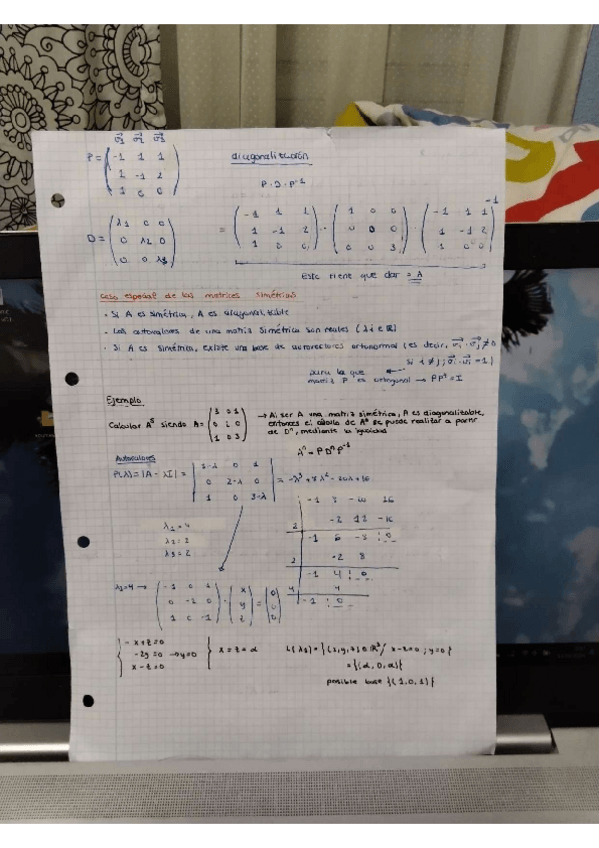 v⃗1 v⃗2 v⃗3
P = ( -1 1 1
1 -1 2
1 0 0 )
diagonalización
P · D · P⁻¹
= ( -1 1 1 ; 1 -1 2 ; 1 0 0 ) · ( 1 0 0 ; 0 0 0 ; 0 0 3 ) · ( -1 1 1 ; 1 -1 2 ; 1 0 0 )⁻¹
D = ( λ1 0 0
0 λ2 0
0 0 λ3 )
Este tiene que dar = A
Caso especial de las matrices simétricas
· Si A es simétrica, A es diagonalizable
· Los autovalores de una matriz simétrica son reales (λi ∈ ℝ)
· Si A es simétrica, existe una base de autovectores ortonormal (es decir, v⃗i · v⃗j ≠ 0
si i ≠ j ; v⃗i · v⃗i = 1)
para la que
matriz P es ortogonal → PPᵗ = I
Ejemplo
Calcular A⁵ siendo A = ( 3 0 1 ; 0 2 0 ; 1 0 3 ) → Al ser A una matriz simétrica, A es diagonalizable,
entonces el cálculo de Aⁿ se puede realizar a partir
de Dⁿ, mediante la igualdad
Aⁿ = P Dⁿ P⁻¹
Autovalores
P(λ) = |A - λI| = | 3-λ 0 1 ; 0 2-λ 0 ; 1 0 3-λ | = -λ³ + 8λ² - 20λ + 16
-1 8 -20 16
2 -2 12 -16
-1 6 -8 0
2 -2 8
-1 4 0
4 4
-1 0
λ1 = 4
λ2 = 2
λ3 = 2
λ1 = 4 → ( -1 0 1 ; 0 -2 0 ; 1 0 -1 ) · ( x ; y ; z ) = ( 0 ; 0 ; 0 )
{ - x + z = 0
-2y = 0 → y = 0
x - z = 0
} x = z = α
L(λ1) = {(x, y, z) ∈ ℝ³ / x - z = 0 ; y = 0}
= {(α, 0, α)}
posible base {(1, 0, 1)}